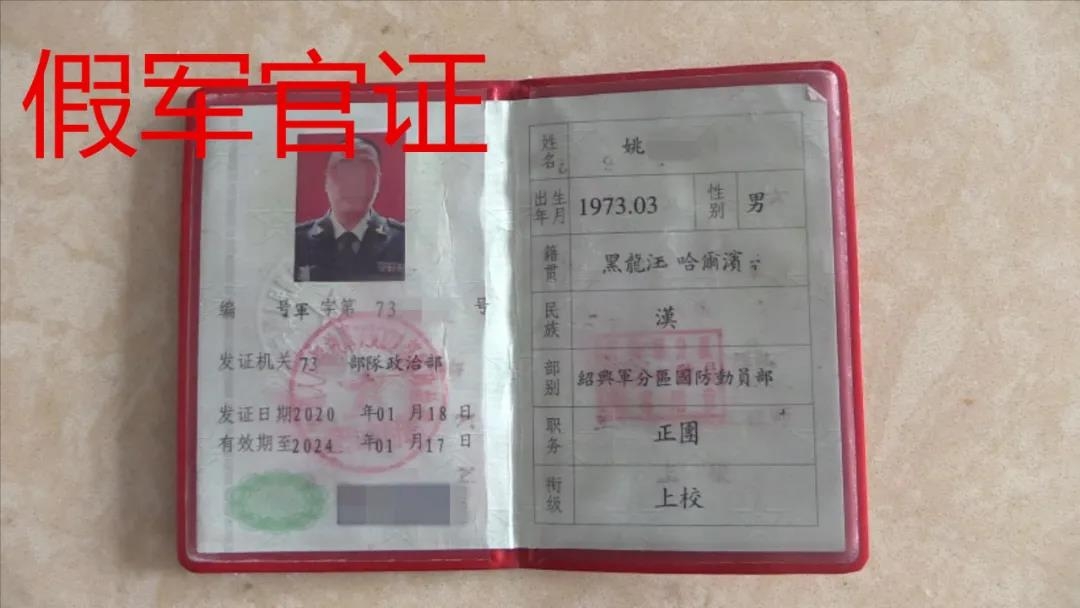 假军官证
编 号軍 字第 73 号
发证机关 73 部隊政治部
发证日期2020 年01 月18 日
有效期至2024 年01 月17 日
姓名 姚
出生年月 1973.03 性别 男
籍贯 黑龍江 哈爾濱
民族 漢
部别 紹興軍分區國防動員部
职务 正團
衔级 上校